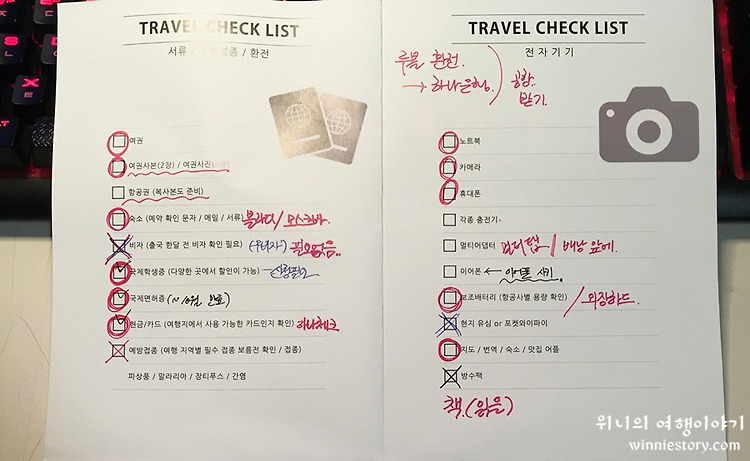 TRAVEL CHECK LIST
서류 / 예방접종 / 환전
여권
여권사본(2장) / 여권사진(2장)
항공권 (복사본도 준비)
숙소 (예약 확인 문자 / 메일 / 서류) 블라디/모스크바.
비자 (출국 한달 전 비자 확인 필요) (무비자!) 필요없음..
국제학생증 (다양한 곳에서 할인이 가능)
국제면허증 (~10월 만료)
현금/카드 (여행지에서 사용 가능한 카드인지 확인) 하나체크
예방접종 (여행 지역별 필수 접종 보름전 확인 / 접종)
파상풍 / 말라리아 / 장티푸스 / 간염
TRAVEL CHECK LIST
전자기기
루블 환전
→ 하나은행.
공항
받기.
노트북
카메라
휴대폰
각종 충전기
멀티어댑터 / 배낭 앞에.
이어폰 ← 이어폰 새거
보조배터리 (항공사별 용량 확인) / 외장하드.
현지 유심 or 포켓와이파이
지도 / 번역 / 숙소 / 맛집 어플
방수팩
책.(읽을)
위니의 여행이야기
winniestory.com